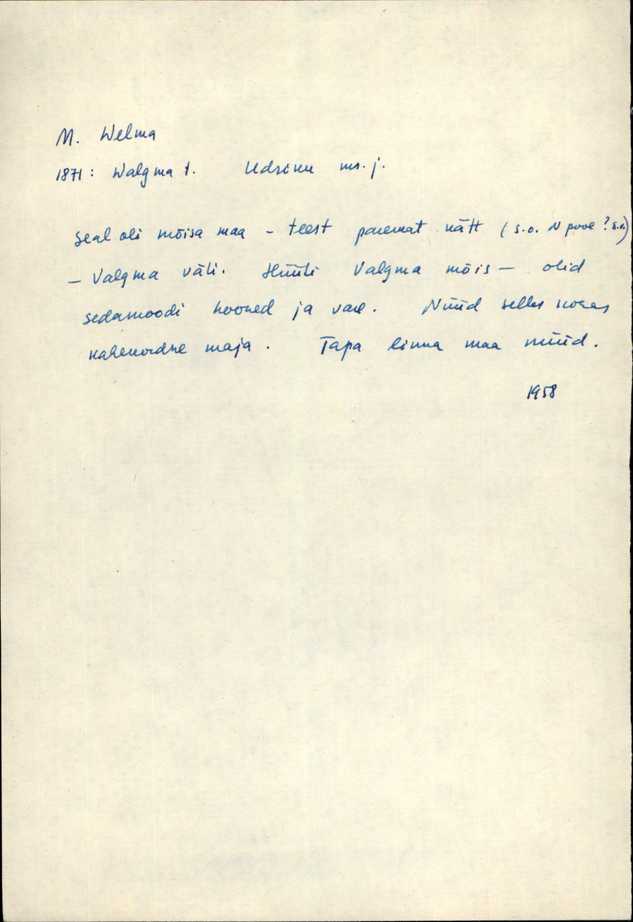 M. Welma
1871: Walgma t. Udriku ms. j.
Seal oli mõisa maa - teest paremat kätt (s.o. N pool?
- Valgma väli. Hüüti Valgma mõis - olid
sedamoodi hooned ja vare. Nüüd selles kohas
kahekordne maja. Tapa linna maa nüüd.
1958